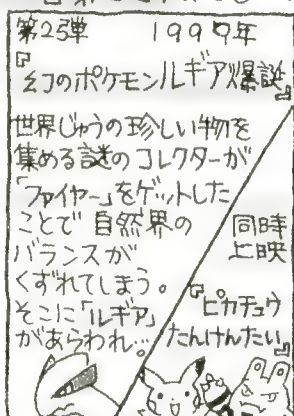 第25弾 1999年
『幻のポケモンルギア爆誕』
世界じゅうの珍しい物を
集める謎のコレクターが
「ファイヤー」をゲットした
ことで自然界の
バランスが
くずれてしまう。
そこに「ルギア」
があらわれ…
同時
上映
『ピカチュウ
たんけんたい』